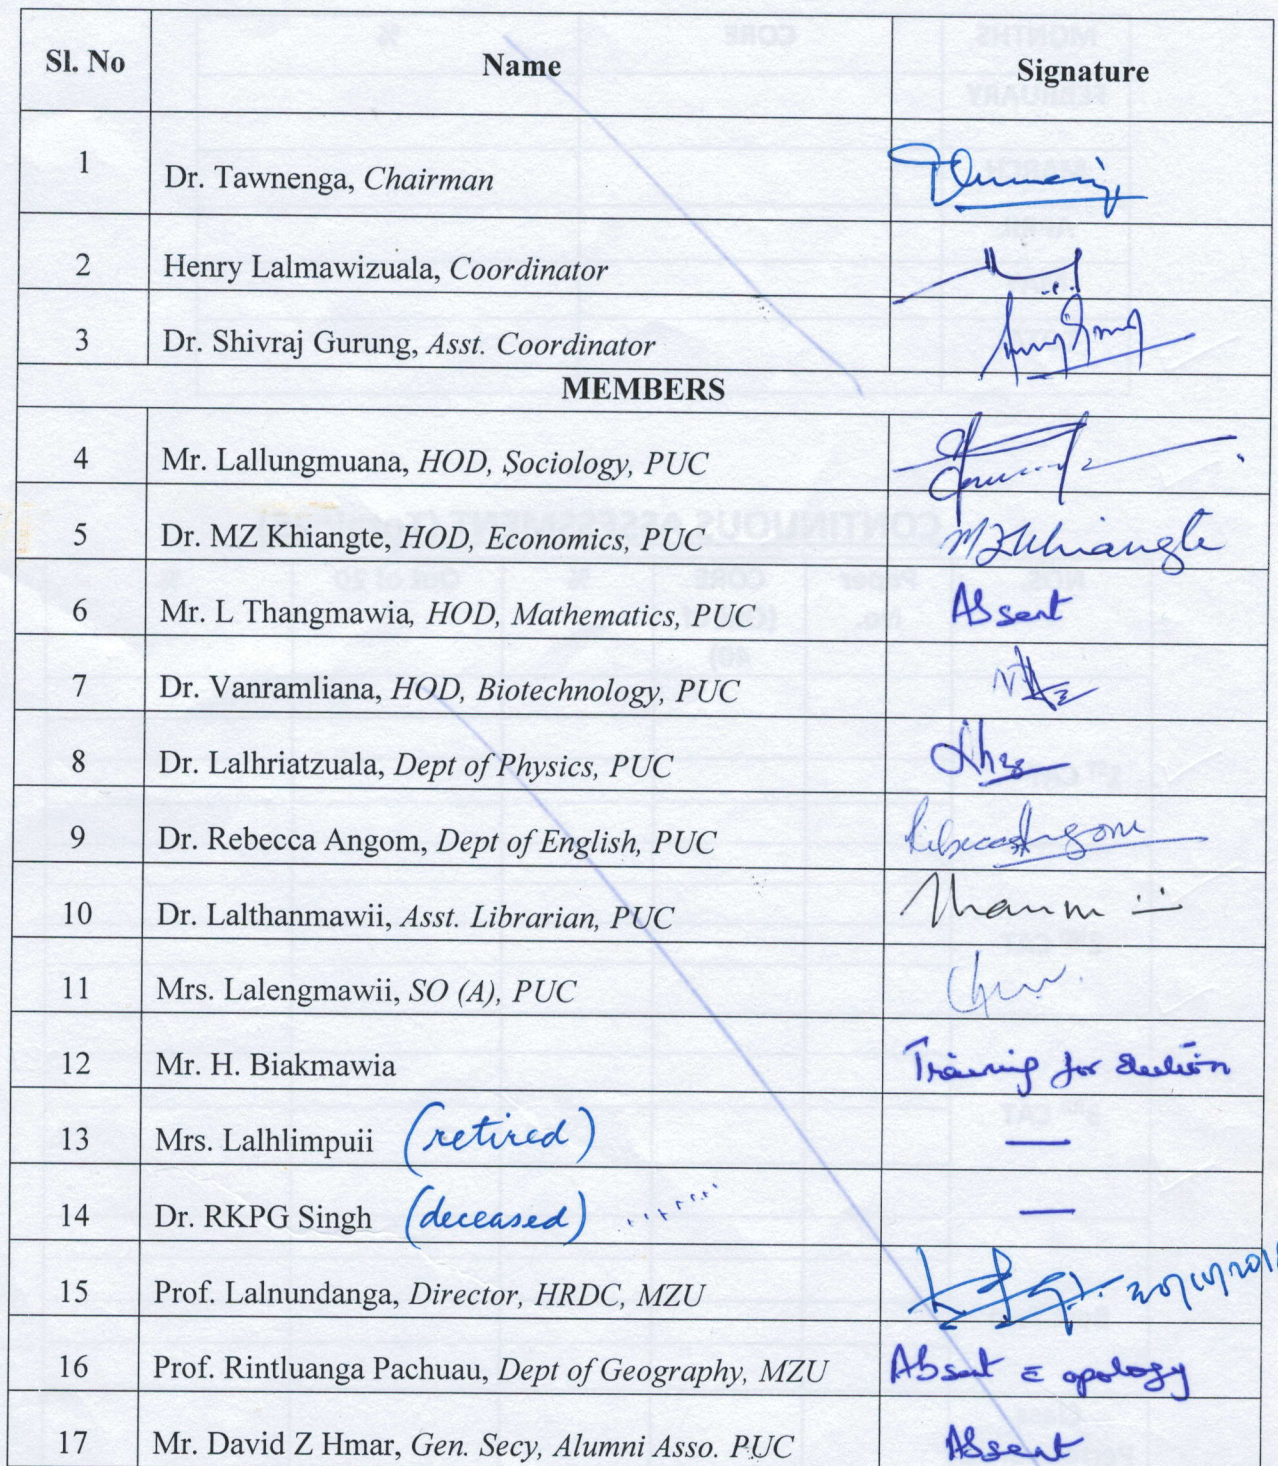 Sl. No Name Signature
1 Dr. Tawnenga, Chairman
2 Henry Lalmawizuala, Coordinator
3 Dr. Shivraj Gurung, Asst. Coordinator
MEMBERS
4 Mr. Lallungmuana, HOD, Sociology, PUC
5 Dr. MZ Khiangte, HOD, Economics, PUC MZKhiangte
6 Mr. L Thangmawia, HOD, Mathematics, PUC Absent
7 Dr. Vanramliana, HOD, Biotechnology, PUC
8 Dr. Lalhriatzuala, Dept of Physics, PUC
9 Dr. Rebecca Angom, Dept of English, PUC RebeccaAngom
10 Dr. Lalthanmawii, Asst. Librarian, PUC
11 Mrs. Lalengmawii, SO (A), PUC
12 Mr. H. Biakmawia Training for Election
13 Mrs. Lalhlimpuii (retired) —
14 Dr. RKPG Singh (deceased) —
15 Prof. Lalnundanga, Director, HRDC, MZU
16 Prof. Rintluanga Pachuau, Dept of Geography, MZU Absent c̄ apology
17 Mr. David Z Hmar, Gen. Secy, Alumni Asso. PUC Absent